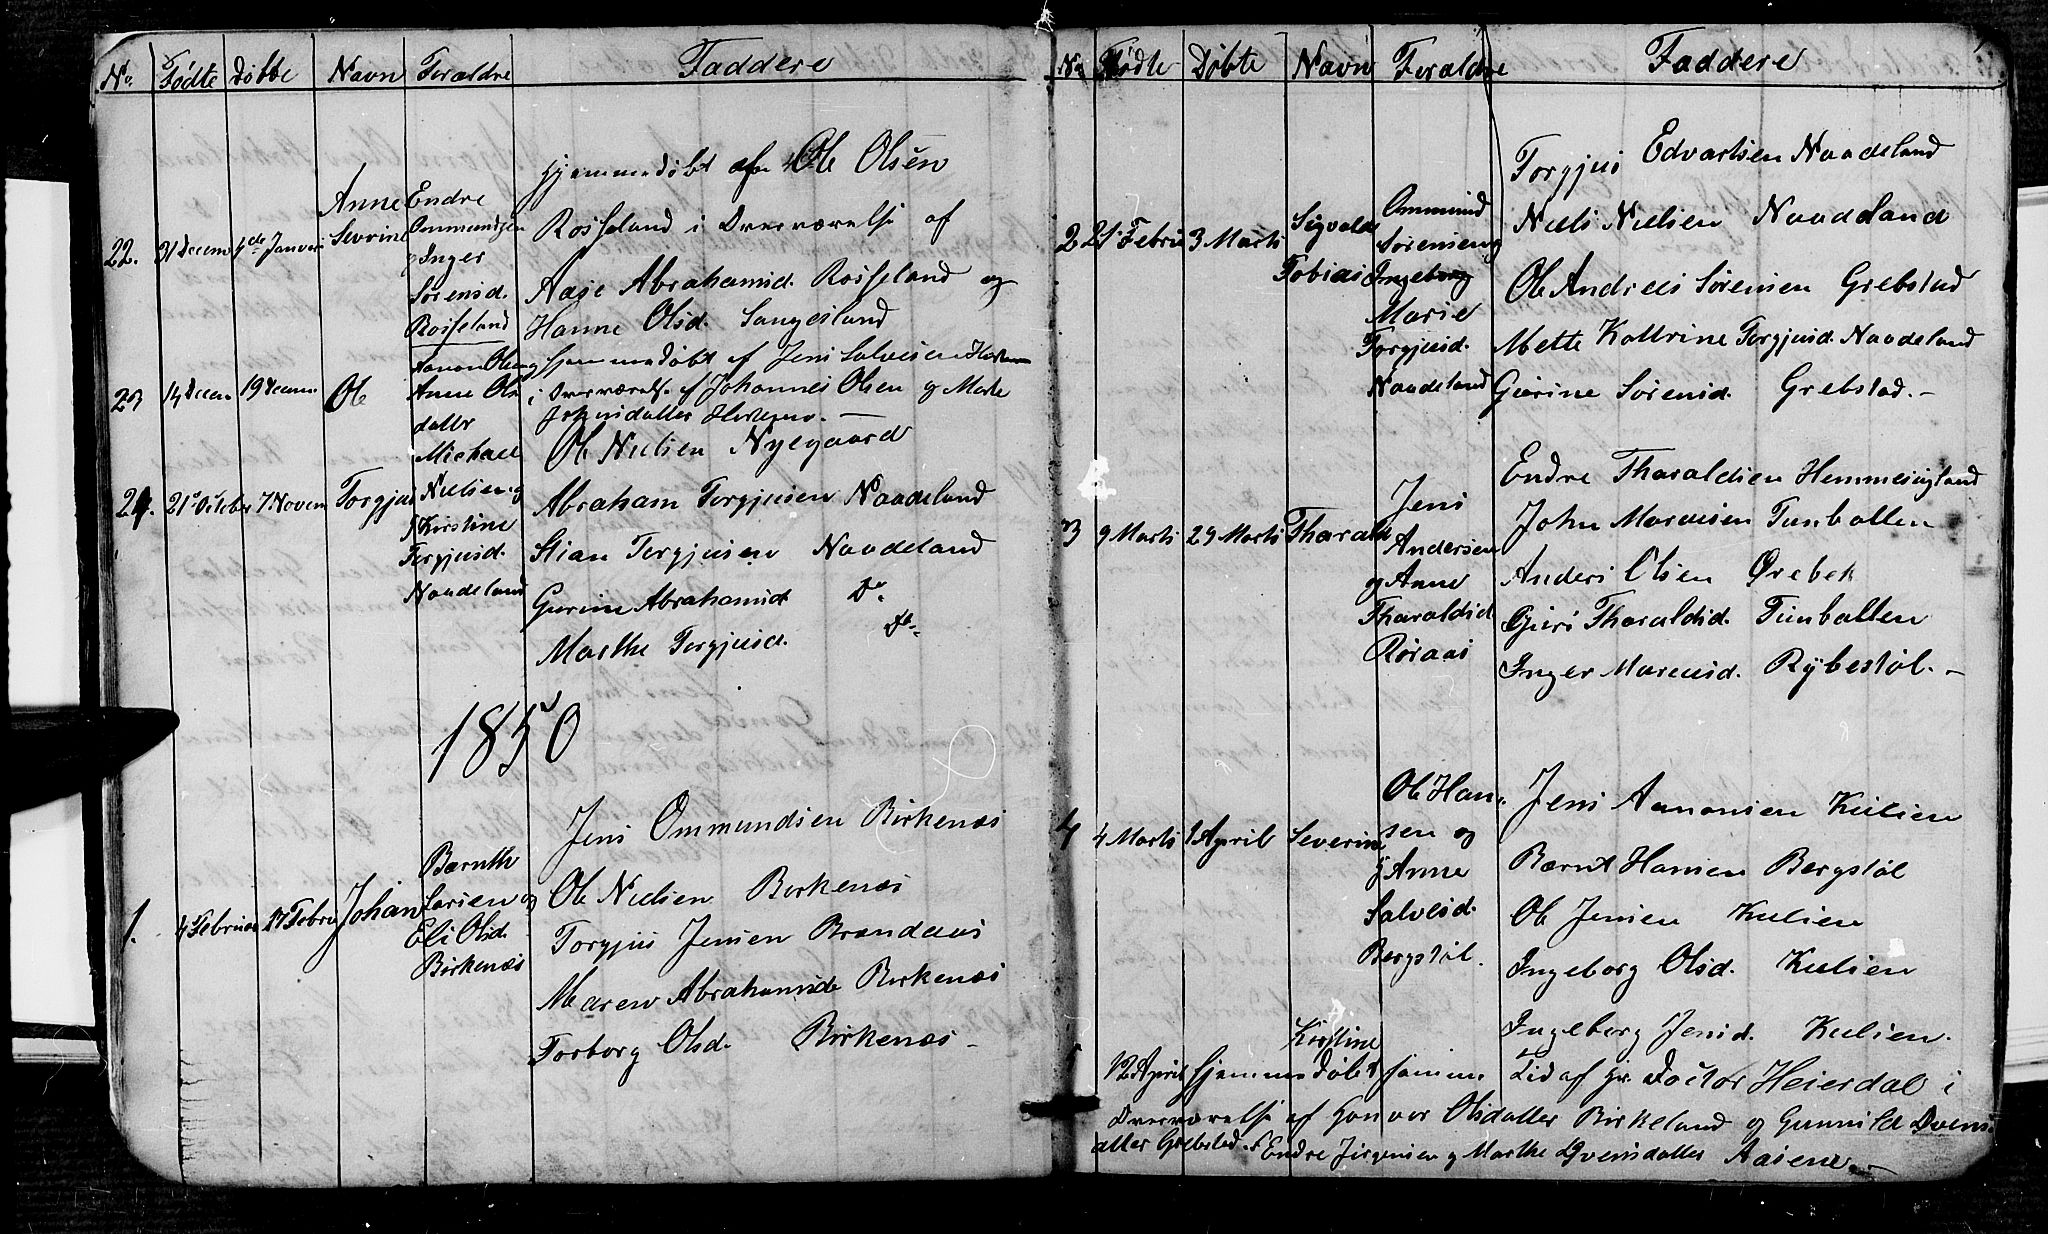 No. Fødte Døbte Navn Forældre Faddere
22. 31 Decem 4de Januar
Anne
Sevrine
Endre
Ommundsen
og Inger
Sørensd.
Rosseland
hjemmedøbt af Ole Olsen
Rosseland i Overværelse af
Aase Abrahamsd. Rosseland og
Hanne Olsd. Sangesland
23 14 Decem 19 Decem Ole
Aanon Olsen og
Anne Ols
datter
hjemmedøbt af Jens Salvesen
i Overværelse af Johannes Olsen og Marte
24. 21 October 7 Novem Torgjus
Michael
Nielsen og
Kirstine
Torgjusd.
Naadeland
Ole Nielsen Nyegaard
Abraham Torgjusen Naadeland
Stian Torgjusen Naadeland
Gurine Abrahamsd. Do.
Marthe Torgjusd. Do.
1850
1. 4 Februar 17 Febru Johan
Bærnth
Larsen og
Eli Olsd.
Birkenæs
Jens Ommundsen Birkenæs
Ole Nielsen Birkenæs
Torgjus Jensen Brændaas
Maren Abrahamsd. Birkenæs
Torborg Olsd. Birkenæs
No. Fødte Døbte Navn Forældre Faddere
2 21 Febru 3 Marts
Sigvald
Tobias
Ommund
Sørensen og
Ingeborg
Marie
Torgjusd.
Naadeland
Torgjus Edvartsen Naadeland
Niels Nielsen Naadeland
Ole Andreas Sørensen Grebstad
Mette Kathrine Torgjusd. Naadeland
Gurine Sørensd. Grebstad.
3 9 Marts 29 Marts Tharald
Jens
Andersen
og Anne
Tharaldsd
Røraas
Endre Tharaldsen Hemmesugland
John Marcusen Tunballen
Anders Olsen Ørebek
Guri Tharaldsd. Tunballen
Inger Marcusd. Rybestøl.
4 4 Marts 1 April Severine
Ole Han
sen og
Anne
Salvesd.
Bergstøl.
Jens Aanonsen Kulien
Bærnt Hansen Bergstøl
Ole Jensen Kulien
Ingeborg Olsd. Kulien
Ingeborg Jensd. Kulien.
Kirstine
12 April hjemmedøbt samme Tid af Hr. Doctor Heierdal i
Overværelse af Gonvor Olsdatter Birkeland og Gunnild Svens
datter Grebstad. Endre Jørgensen og Marthe Svensdatter Aasene